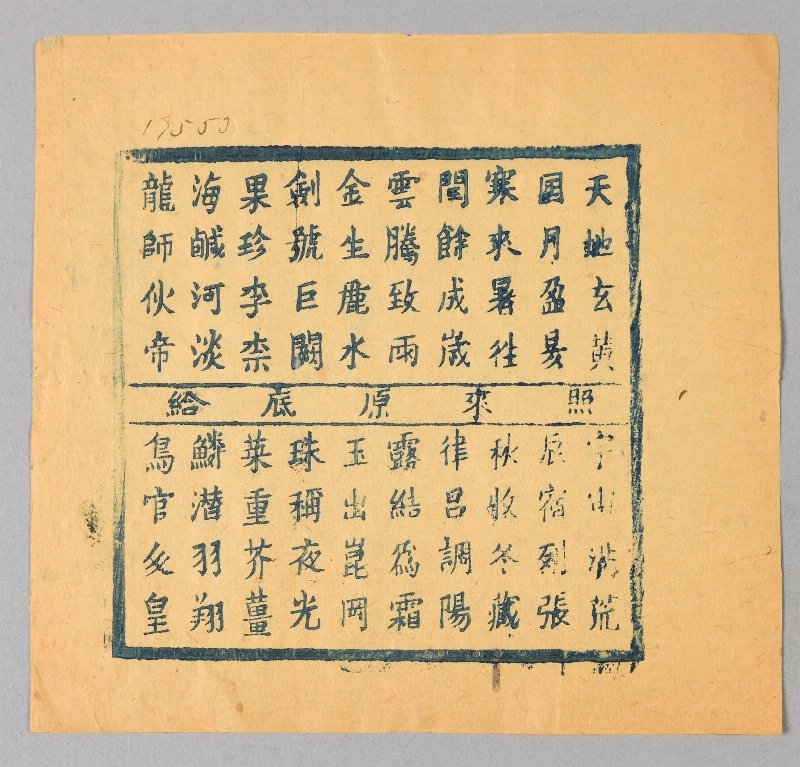 天地玄黃
日月盈昃
寒來暑往
閏餘成歲
雲騰致雨
金生麗水
劍號巨闕
果珍李柰
海鹹河淡
龍師伙帝
照來原底給
宇宙洪荒
辰宿列張
秋收冬藏
律呂調陽
露結爲霜
玉出崑岡
珠稱夜光
菜重芥薑
鱗潛羽翔
鳥官人皇